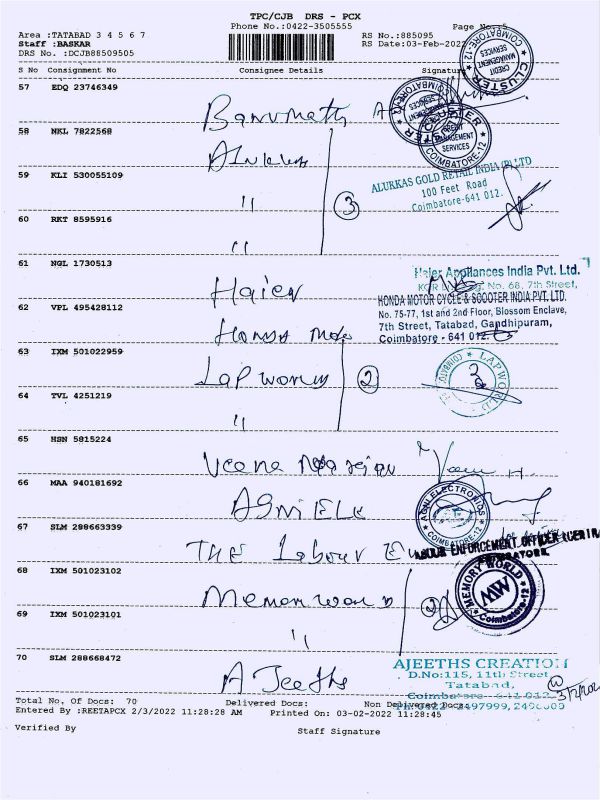 TPC/CJB DRS - PCX
Phone No.:0422-3505555 Page No.:5
Area :TATABAD 3 4 5 6 7 RS No.:885095
Staff :BASKAR RS Date:03-Feb-2022
DRS No. :DCJB88509505
S No Consignment No Consignee Details Signature
57 EDQ 23746349
Banumathi
58 NKL 7822568
59 KLI 530055109
"
ALUKKAS GOLD RETAIL INDIA (P) LTD
100 Feet Road
Coimbatore-641 012.
3
60 RKT 8595916
"
61 NGL 1730513
Haier
Haier Appliances India Pvt. Ltd.
No. 68, 7th Street,
62 VPL 495428112
Honda Moto
HONDA MOTOR CYCLE & SCOOTER INDIA PVT. LTD.
No. 75-77, 1st and 2nd Floor, Blossom Enclave,
7th Street, Tatabad, Gandhipuram,
Coimbatore - 641 012.
63 IXM 501022959
Lap world
2
LAP WORLD
64 TVL 4251219
"
65 HSN 5815224
Veena
66 MAA 940181692
AGni ELE
AGNI ELECTRONICS
COIMBATORE-12
67 SLM 288663339
THE Labour E
LABOUR ENFORCEMENT OFFICER
COIMBATORE.
68 IXM 501023102
Memory world
2
MEMORY WORLD
MW
Coimbatore-12
69 IXM 501023101
"
70 SLM 288668472
AJeeths
AJEETHS CREATION
D.No:115, 11th Street
Tatabad,
Coimbatore - 641 012
CREDIT MANAGEMENT SERVICES
CLUSTER
COIMBATORE-12
Total No. Of Docs: 70 Delivered Docs: Non Delivered Docs:
Entered By :REETAPCX 2/3/2022 11:28:28 AM Printed On: 03-02-2022 11:28:45
Verified By Staff Signature